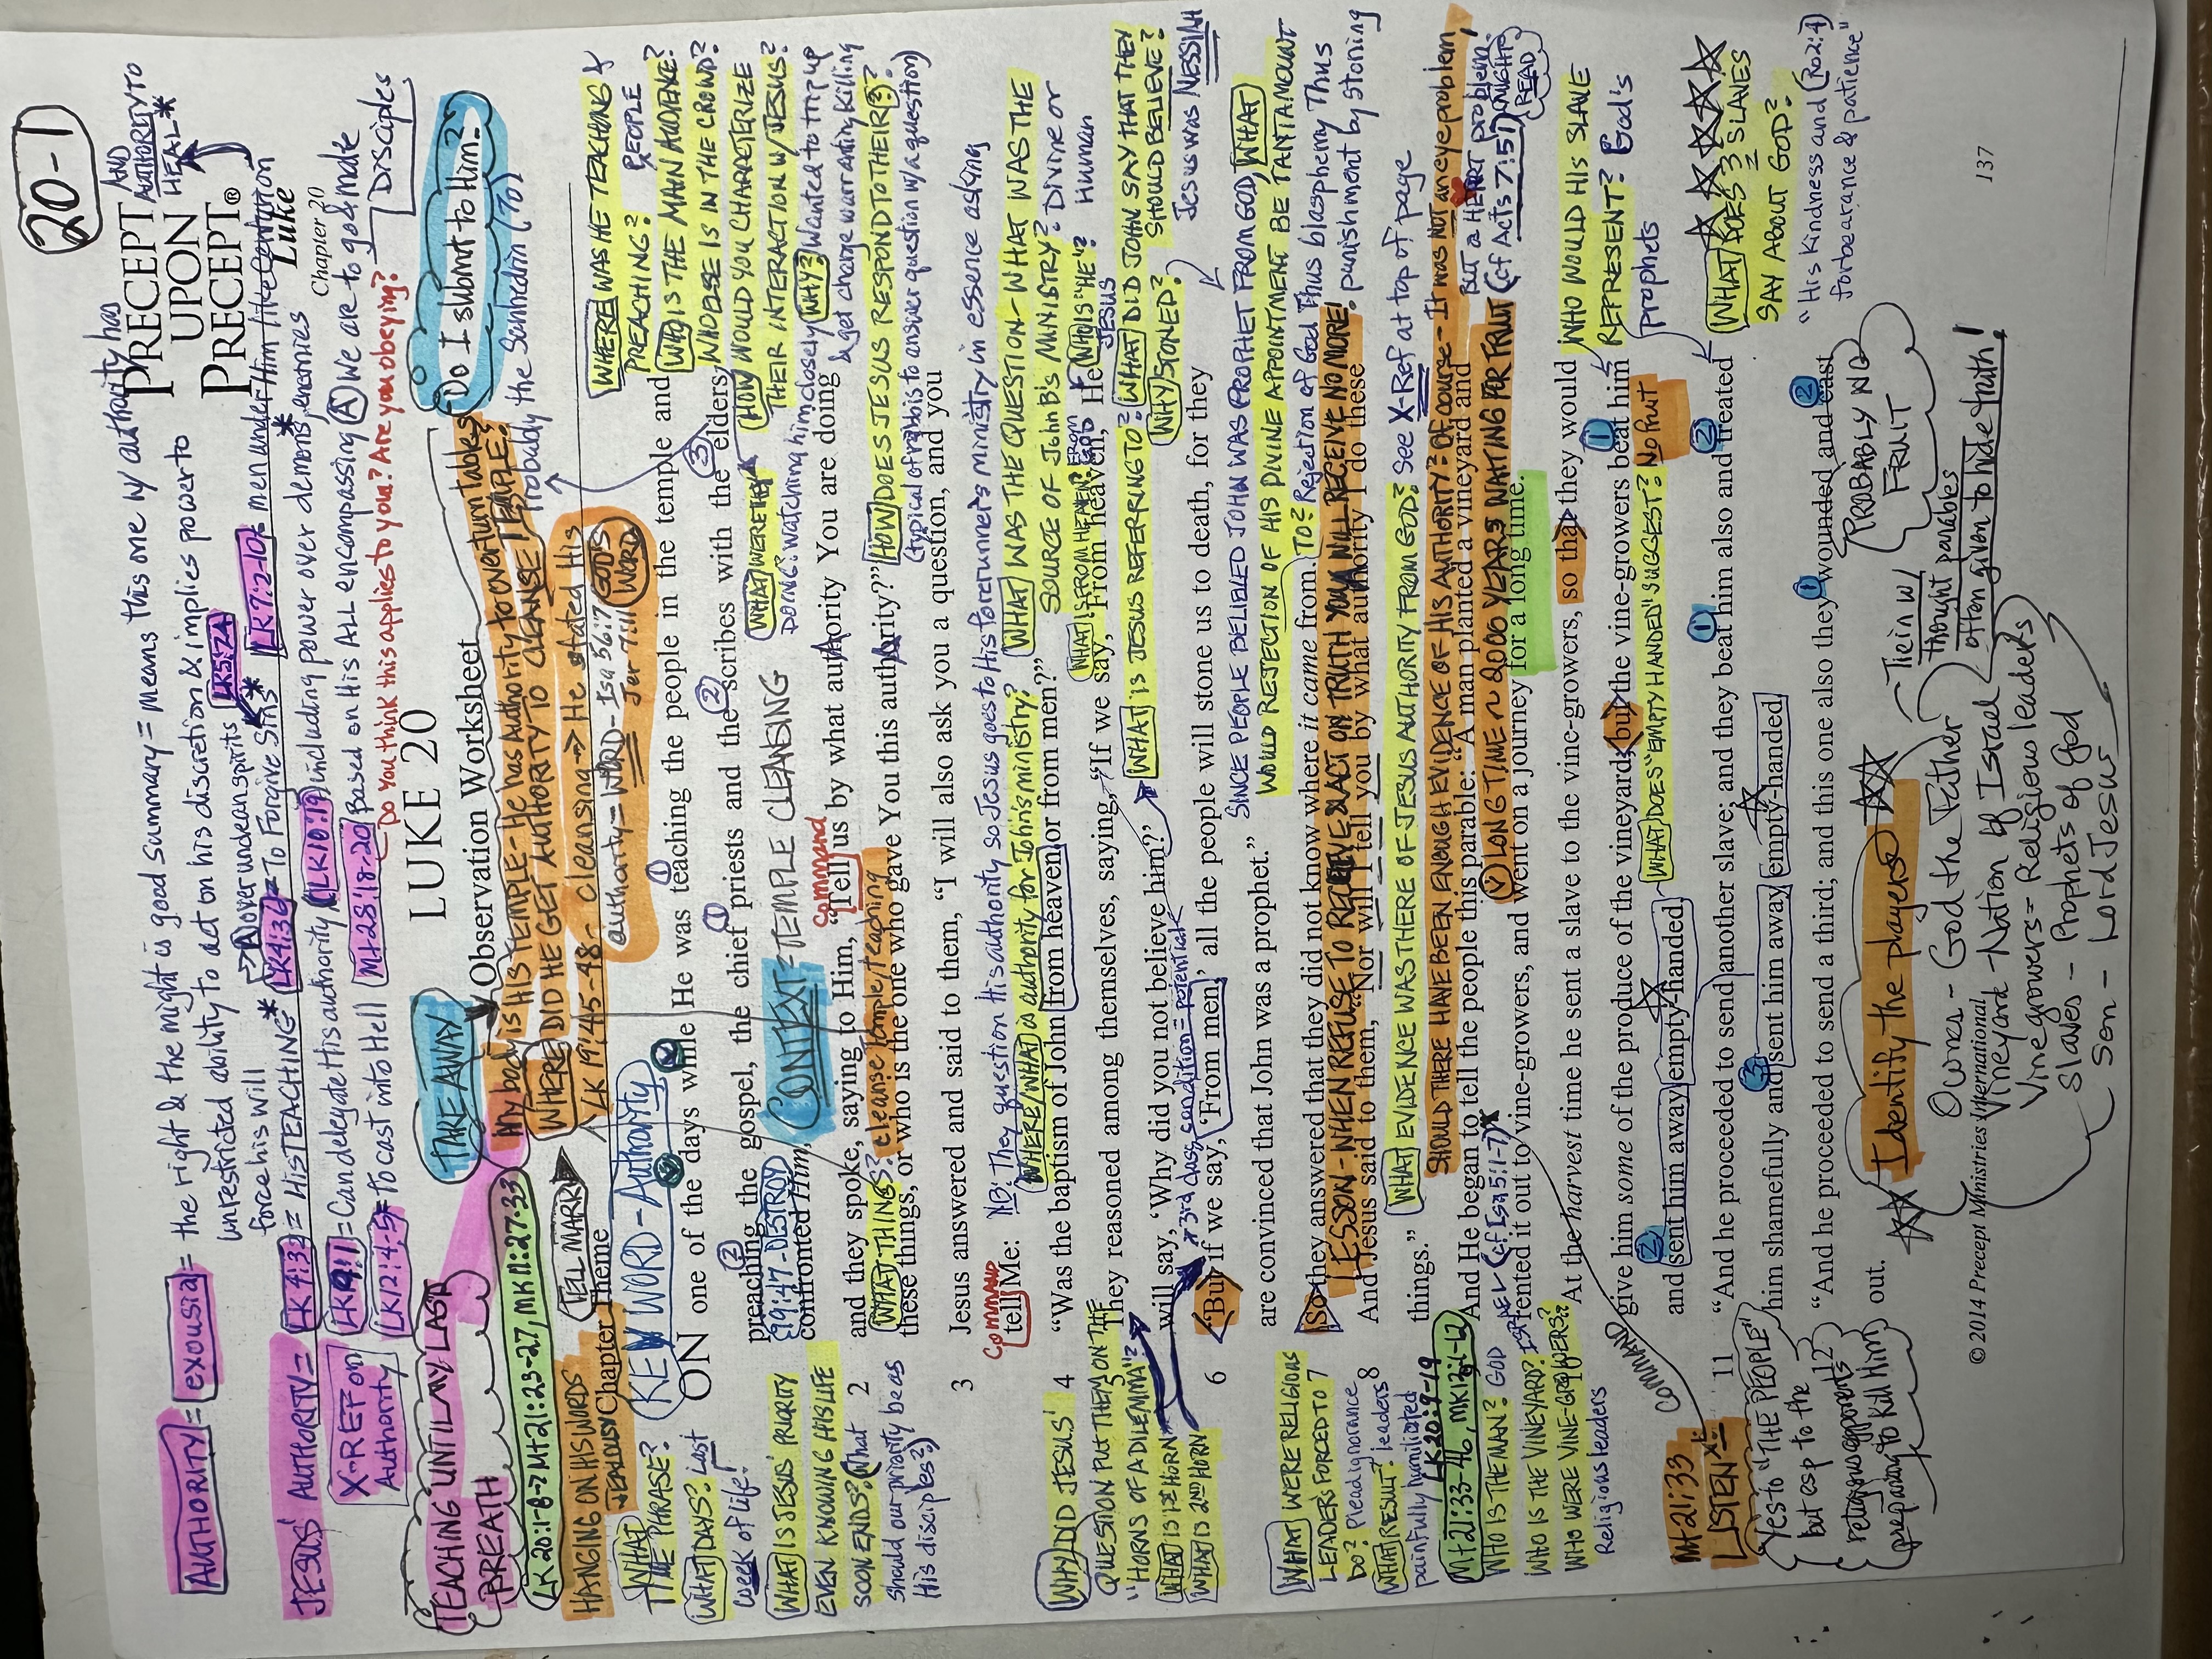 20-1
AUTHORITY = exousia = the right & the might is good summary = means this one w/ authority has
unrestricted ability to act on his discretion & implies power to
force his will
AND
AUTHORITY TO
HEAL *
PRECEPT
UPON
PRECEPT®
Luke
Chapter 20
→ A over unclean spirits LK 5:24
JESUS' AUTHORITY = LK 4:32 = His TEACHING* LK 4:36 = To Forgive Sins* LK 7:2-10 = men under Him like Centurion
X-REF on
Authority
LK 9:1 = Can delegate His authority (LK 10:19) including power over demons, enemies
LK 12:4-5 = To cast into Hell Mt 28:18-20 Based on His ALL encompassing A We are to go & make
Disciples
Do you think this applies to you? Are you obeying?
TEACHING UNTIL MY LAST
BREATH
TAKE AWAY
LUKE 20
Observation Worksheet
Do I submit to Him?
My body is HIS TEMPLE - He has Authority to overturn tables
WHERE DID HE GET AUTHORITY TO CLEANSE TEMPLE?
Probably the Sanhedrin (70)
LK 19:45-48 - Cleansing → He stated His
authority = WORD - Isa 56:7
Jer 7:11
GOD'S
WORD
LK 20:1-8 → Mt 21:23-27, MK 11:27-33
TELL MARK
HANGING ON HIS WORDS
JEALOUSY
Chapter Theme
KEY WORD - Authority
WHAT
TIME PHRASE?
WHAT DAYS? Last
week of life!
WHERE WAS HE TEACHING &
PREACHING? PEOPLE
WHO IS THE MAIN AUDIENCE?
WHO ELSE IS IN THE CROWD?
HOW WOULD YOU CHARACTERIZE
THEIR INTERACTION W/ JESUS?
WHY? Wanted to trip up
& get charge warranting killing
ON one of the days while He was teaching the people in the temple and
preaching the gospel, the chief priests and the scribes with the elders
confronted Him,
19:47 - DESTROY
CONTEXT = TEMPLE CLEANSING
WHAT WERE THEY
DOING? watching him closely
WHAT IS JESUS' PRIORITY
EVEN KNOWING HIS LIFE
SOON ENDS? (What
should our priority be as
His disciples?)
2 and they spoke, saying to Him, “Tell us by what authority You are doing
Command
these things, or who is the one who gave You this authority?”
WHAT THINGS? cleanse temple, teaching
HOW DOES JESUS RESPOND TO THEIR (3)?
(typical of rabbis to answer question w/ a question)
3 Jesus answered and said to them, “I will also ask you a question, and you
tell Me:
Command
NB: They question His authority so Jesus goes to His forerunner's ministry in essence asking
WHERE/WHAT is authority for John's ministry?
WHAT WAS THE QUESTION - WHAT WAS THE
SOURCE OF John B's MINISTRY? Divine or
Human
4 “Was the baptism of John from heaven or from men?”
WHY DID JESUS'
QUESTION PUT THEM ON THE
"HORNS OF A DILEMMA"?
WHAT IS 1st HORN
WHAT IS 2nd HORN
WHAT IS FROM HEAVEN? From GOD
WHO IS "HE"?
JESUS
5 They reasoned among themselves, saying, “If we say, ‘From heaven,’ He
will say, ‘Why did you not believe him?’
WHAT IS JESUS REFERRING TO?
WHAT DID JOHN SAY THAT THEY
SHOULD BELIEVE?
Jesus was MESSIAH
WHY STONED?
* 3rd class condition = potential
6 “But if we say, ‘From men,’ all the people will stone us to death, for they
are convinced that John was a prophet.”
SINCE PEOPLE BELIEVED JOHN WAS PROPHET FROM GOD, WHAT
WOULD REJECTION OF HIS DIVINE APPOINTMENT BE TANTAMOUNT
TO? Rejection of God Thus blasphemy Thus
punishment by stoning
WHAT WERE RELIGIOUS
LEADERS FORCED TO
DO? Plead ignorance
WHAT RESULT? leaders
painfully humiliated
7 So they answered that they did not know where it came from.
LESSON - WHEN REFUSE TO RECEIVE & ACT ON TRUTH YOU WILL RECEIVE NO MORE!
8 And Jesus said to them, “Nor will I tell you by what authority I do these
things.”
WHAT EVIDENCE WAS THERE OF JESUS AUTHORITY FROM GOD? See X-Ref at top of page
SHOULD THERE HAVE BEEN ENOUGH EVIDENCE OF HIS AUTHORITY? Of course - It was NOT an eye problem,
BUT a HEART problem.
(cf Acts 7:51)
READ
LK 20:9-19
Mt 21:33-46, MK 12:1-12
WHO IS THE MAN? GOD
WHO IS THE VINEYARD? ISRAEL (cf Isa 5:1-7)
WHO WERE VINE-GROWERS?
Religious leaders
And He began to tell the people this parable: “A man planted a vineyard and
rented it out to vine-growers, and went on a journey for a long time.
LONG TIME ~ 2000 YEARS WAITING FOR FRUIT
“At the harvest time he sent a slave to the vine-growers, so that they would
give him some of the produce of the vineyard; but the vine-growers beat him
and sent him away empty-handed.
WHAT DOES "EMPTY HANDED" SUGGEST? No fruit
WHO WOULD HIS SLAVE
REPRESENT? God's
Prophets
WHAT DOES 3 SLAVES
SAY ABOUT GOD?
"His Kindness and (Ro 2:4)
forbearance & patience"
COMMAND
Mt 21:33
LISTEN
Yes to "THE PEOPLE"
but esp to the
religious opponents
preparing to Kill Him
11 “And he proceeded to send another slave; and they beat him also and treated
him shamefully and sent him away empty-handed.
12 “And he proceeded to send a third; and this one also they wounded and cast
out.
PROBABLY NO
FRUIT
Tie in w/
thought parables
often given to hide truth!
Identify the players
Owner - God the Father
Vineyard - Nation of Israel
Vinegrowers = Religious leaders
Slaves - Prophets of God
Son - Lord Jesus
© 2014 Precept Ministries International
137